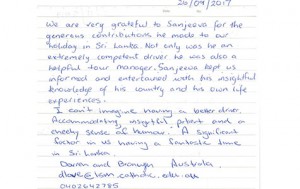 26/09/2017
We are very grateful to Sanjeewa for the
generous contributions he made to our
holiday in Sri Lanka. Not only was he an
extremely competent driver he was also a
helpful tour manager. Sanjeewa kept us
informed and entertained with his insightful
knowledge of his country and his own life
experiences.
I can't imagine having a better driver.
Accommodating, insightful, patient and a
cheeky sense of humour. A significant
factor in us having a fantastic time
in Sri Lanka.
Darren and Bronwyn Australia.
0402642785